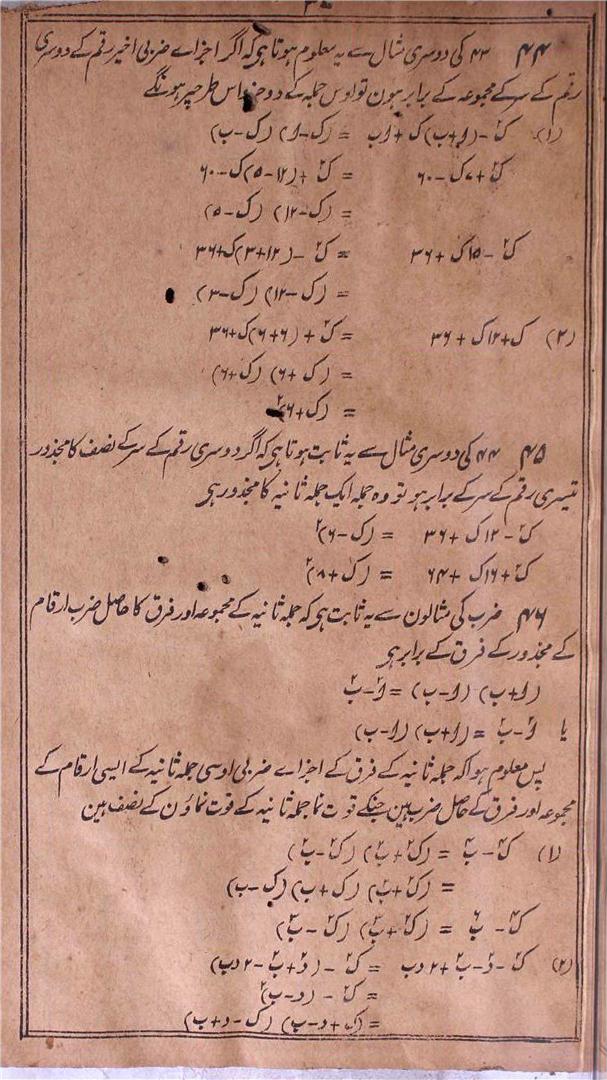 ۳۰
۴۴ ۴۳ کی دوسری مثال سے یہ معلوم ہوتا ہی کہ اگر اجزاے ضربی اخیر رقم کے دوسری
رقم کے سر کے مجموعہ کے برابر ہون تو اوس جملہ کے دو جز اس طرح پر ہونگے
(۱) ک۲ -(ا+ب)ک +اب = (ک-ا) (ک-ب)
ک۲ +۷ک -۶۰ = ک۲ +(۱۲-۵)ک-۶۰
= (ک-۱۲) (ک-۵)
ک۲ -۱۵ک +۳۶ = ک۲ -(۱۲+۳)ک+۳۶
= (ک-۱۲) (ک-۳)
(۲) ک+۱۲ک +۳۶ = ک۲ +(۶+۶)ک+۳۶
= (ک +۶) (ک+۶)
= (ک+۶)۲
۴۵ ۴۴ کی دوسری مثال سے یہ ثابت ہوتا ہی کہ اگر دوسری رقم کے سر کے نصف کا مجذور
تیسری رقم کے سر کے برابر ہو تو وہ جملہ ایک جملہ ثانیہ کا مجذور ہی
ک۲ -۱۲ک +۳۶ = (ک-۶)۲
ک۲ +۱۶ک +۶۴ = (ک+۸)۲
۴۶ ضرب کی مثالون سے یہ ثابت ہی کہ جملہ ثانیہ کے مجموعہ اور فرق کا حاصل ضرب ارقام
کے مجذور کے فرق کے برابر ہی
(ا+ب) (ا-ب) = ا۲-ب۲
یا ا۲-ب۲ = (ا+ب) (ا-ب)
پس معلوم ہوا کہ جملہ ثانیہ کے فرق کے اجزاے ضربی اوسی جملہ ثانیہ کے ایسی ارقام کے
مجموعہ اور فرق کے حاصل ضرب ہین جنکے قوت نما جملہ ثانیہ کے قوت نماؤن کے نصف ہین
(۱) ک۴-ب۴ = (ک۲+ب۲) (ک۲-ب۲)
= (ک۲+ب۲) (ک+ب) (ک-ب)
(۲) ک۲ -د۲-ب۲+۲دب = ک۲ -(د۲+ب۲-۲دب)
= ک۲ -(د-ب)۲
= (ک+د-ب) (ک-د+ب)